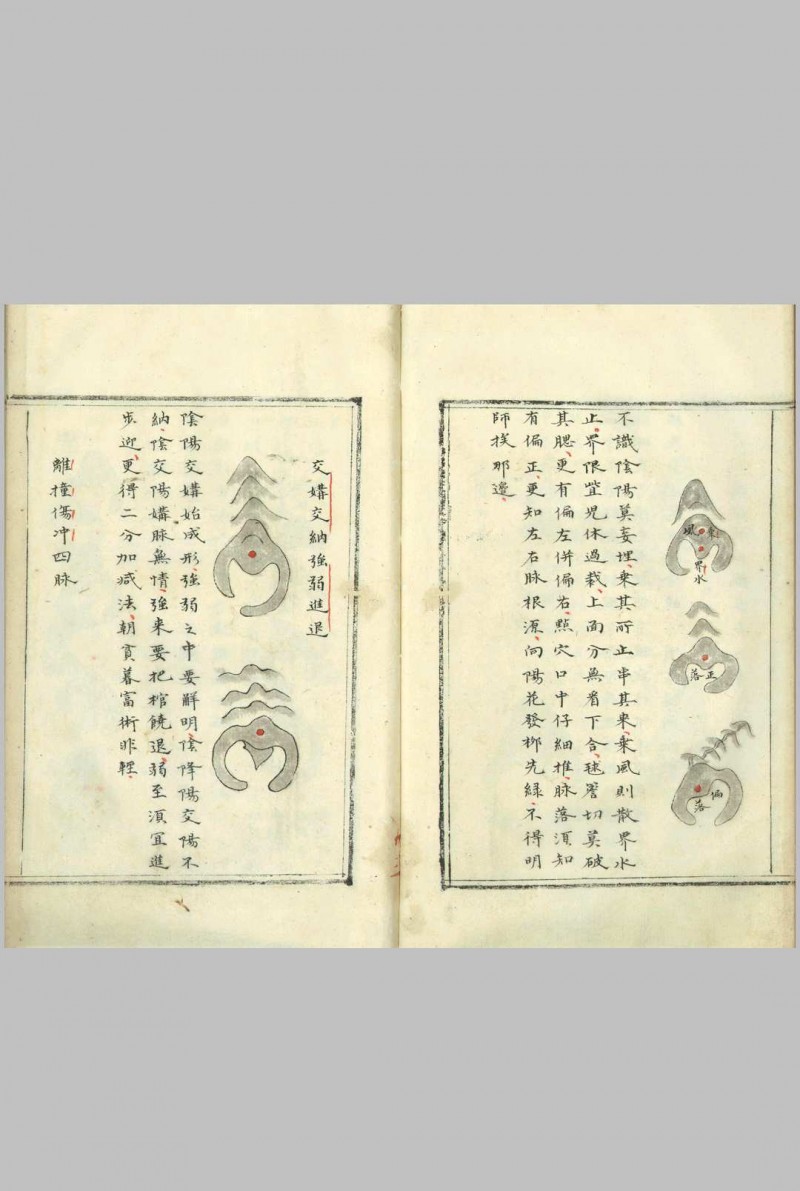 乘
風
界水
正
落
偏
落
不識陰陽莫妄埋乘其所止串其來乘風則散界水
止界限豈児休過裁上面分無看下合毬詹切莫破
其腮更有偏左併偏右點穴口中仔細推脉落須知
有偏正更知左右脉根源向陽花發柳先緑不得明
師挨那邊
交媾交納強弱進退
陰陽交媾始成形強弱之中要觧明陰降陽交陽不
納陰交陽媾脉無情強来要把棺饒退弱至湏宜進
步迎更得二分加减法朝貧暮富術非輕
離撞傷冲四脉